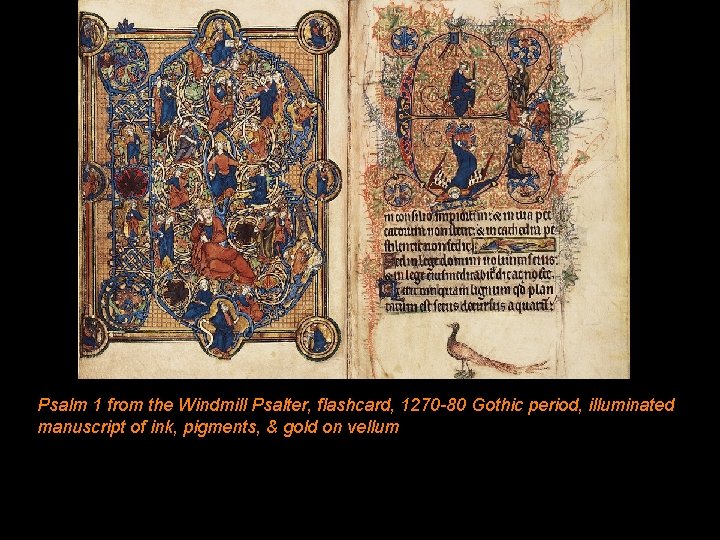 in consilio impiorum: & in uia pec
catorum non stetit: & in cathedra pe
stilentie non sedit
Sed in lege domini uoluntas eius:
& in lege eius meditabit͛ die ac nocte.
Et erit tanquam lignum qd̕ plan
tatum est secus decursus aquarū:
Psalm 1 from the Windmill Psalter, flashcard, 1270-80 Gothic period, illuminated
manuscript of ink, pigments, & gold on vellum